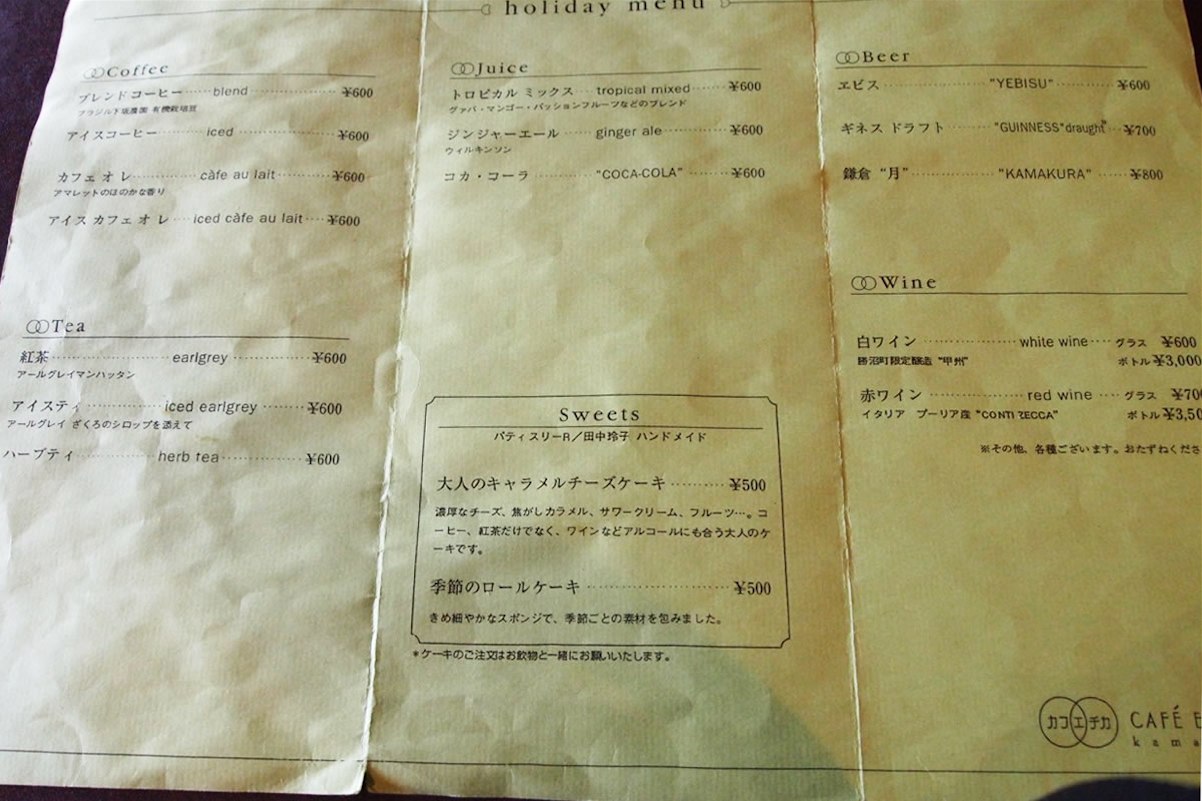 holiday menu
Coffee
ブレンドコーヒー blend ¥600
ブラジル下坂農園 有機栽培豆
アイスコーヒー iced ¥600
カフェ オ レ càfe au lait ¥600
アマレットのほのかな香り
アイス カフェ オ レ iced càfe au lait ¥600
Tea
紅茶 earlgrey ¥600
アールグレイマンハッタン
アイスティ iced earlgrey ¥600
アールグレイ ざくろのシロップを添えて
ハーブティ herb tea ¥600
Juice
トロピカル ミックス tropical mixed ¥600
グァバ・マンゴー・パッションフルーツなどのブレンド
ジンジャーエール ginger ale ¥600
ウィルキンソン
コカ・コーラ "COCA-COLA" ¥600
Sweets
パティスリーR／田中玲子 ハンドメイド
大人のキャラメルチーズケーキ ¥500
濃厚なチーズ、焦がしカラメル、サワークリーム、フルーツ…。コ
ーヒー、紅茶だけでなく、ワインなどアルコールにも合う大人のケ
ーキです。
季節のロールケーキ ¥500
きめ細やかなスポンジで、季節ごとの素材を包みました。
*ケーキのご注文はお飲物と一緒にお願いいたします。
Beer
ヱビス "YEBISU" ¥600
ギネス ドラフト "GUINNESS"draught ¥700
鎌倉 "月" "KAMAKURA" ¥800
Wine
白ワイン white wine グラス ¥600
勝沼町限定醸造 "甲州" ボトル ¥3,000
赤ワイン red wine グラス ¥70
イタリア プーリア産 "CONTI ZECCA" ボトル ¥3,50
※その他、各種ございます。おたずねくださ
カフェエチカ CAFÉ E
kama